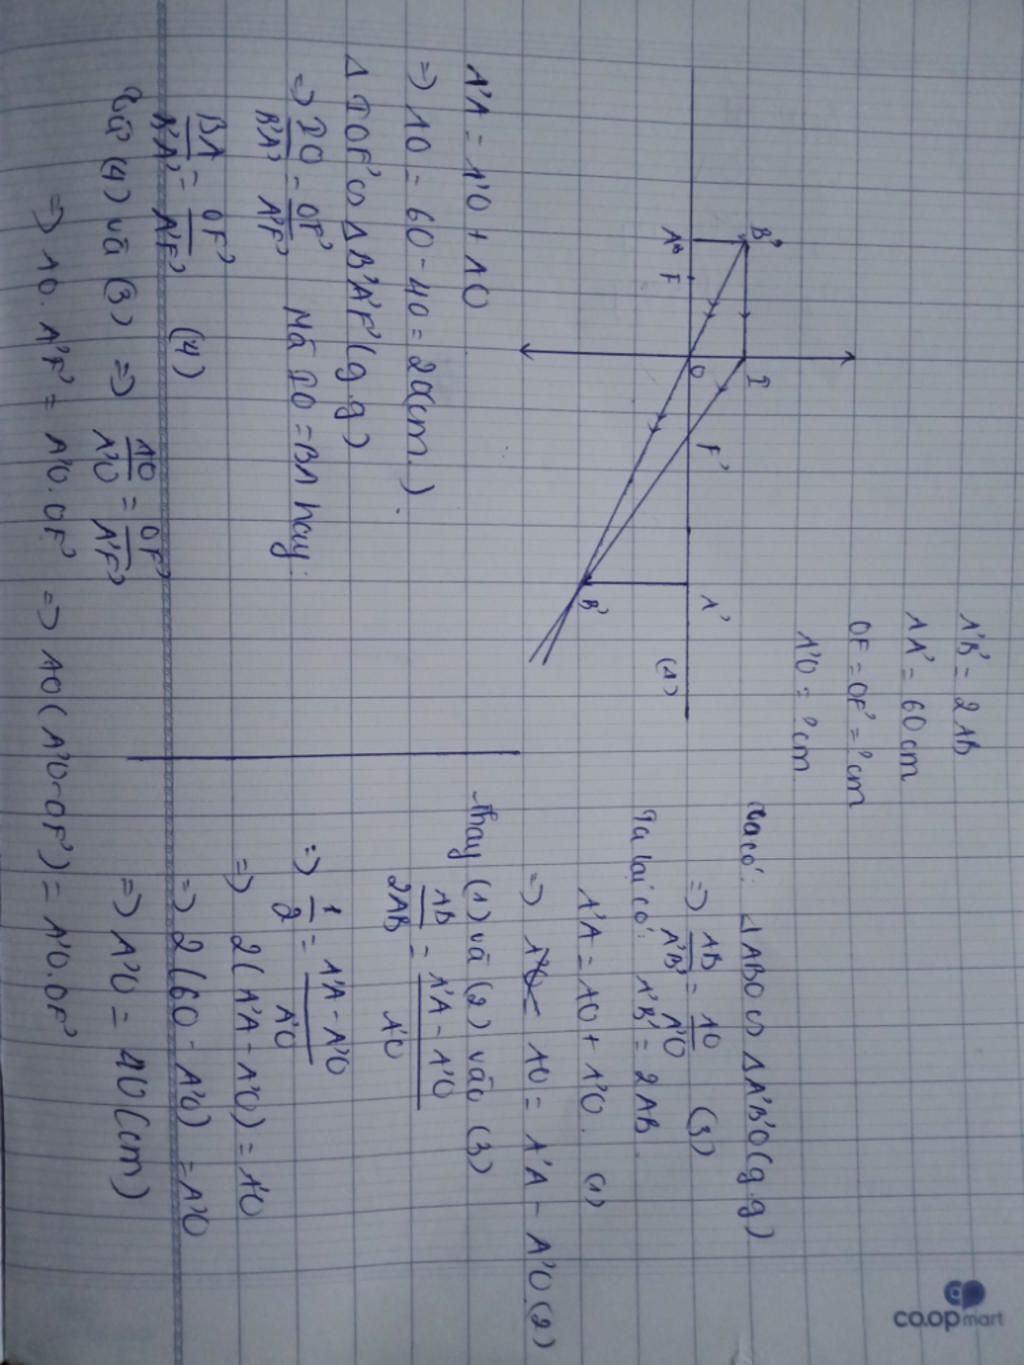 A'B' = 2AB
AA' = 60cm
OF = OF' = ? cm
A'O = ? cm
B'
I
A
F
O
F'
A'
(Δ)
B'
Ta có: ΔABO ∽ ΔA'B'O (g.g)
=> AB/A'B' = AO/A'O (3)
Ta lại có: A'B' = 2AB
A'A = AO + A'O. (1)
=> AO = A'A - A'O (2)
thay (1) và (2) vào (3)
AB/2AB = A'A - A'O/A'O
=> 1/2 = A'A - A'O/A'O
=> 2(A'A - A'O) = A'O
=> 2(60 - A'O) = A'O
=> A'O = 40 (cm)
A'A = A'O + AO
=> AO = 60 - 40 = 20(cm).
Δ IOF' ∽ Δ B'A'F' (g.g)
=> IO/B'A' = OF'/A'F' Mà IO = BA hay:
BA/B'A' = OF'/A'F' (4)
Từ (4) và (3) => AO/A'O = OF'/A'F'
=> AO. A'F' = A'O. OF' => AO (A'O - OF') = A'O. OF'
co.opmart